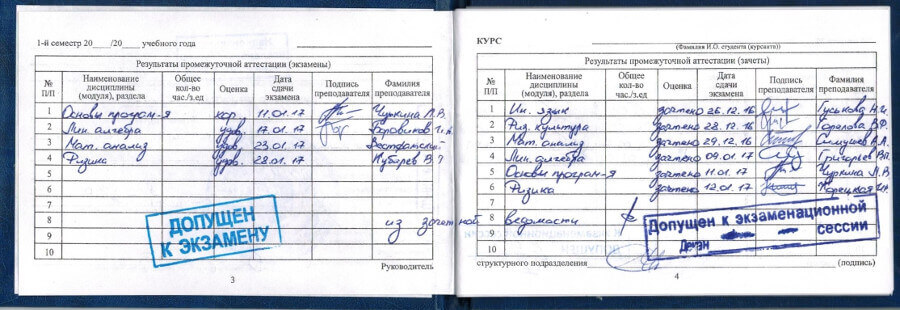 1-й семестр 20____/20____ учебного года
Результаты промежуточной аттестации (экзамены)
№ П/П Наименование дисциплины (модуля), раздела Общее кол-во час./з.ед Оценка Дата сдачи экзамена Подпись преподавателя Фамилия преподавателя
1 Основы програм-я хор. 11.01.17 Чуркина Л.В.
2 Лин. алгебра удв. 17.01.17
3 Мат. анализ удв. 23.01.17
4 Физика удв. 28.01.17
5
6
7
8 из зачетной
9
10
ДОПУЩЕН
К ЭКЗАМЕНУ
Руководитель
3
КУРС
(Фамилия И.О. студента (курсанта))
Результаты промежуточной аттестации (зачеты)
№ П/П Наименование дисциплины (модуля), раздела Общее кол-во час./з.ед Оценка Дата сдачи зачета Подпись преподавателя Фамилия преподавателя
1 Ин. язык зачтено 26.12.16 Гуськова Н.И.
2 Физ. культура зачтено 28.12.16 Горелова В.Ф.
3 Мат. анализ зачтено 29.12.16
4 Лин. алгебра зачтено 09.01.17 Григорьев В.П.
5 Основы програм-я зачтено 11.01.17 Чуркина Л.В.
6 Физика зачтено 12.01.17 Корецкая
7
8 ведомости
9
10
Допущен к экзаменационной
сессии
Декан
структурного подразделения (подпись)
4